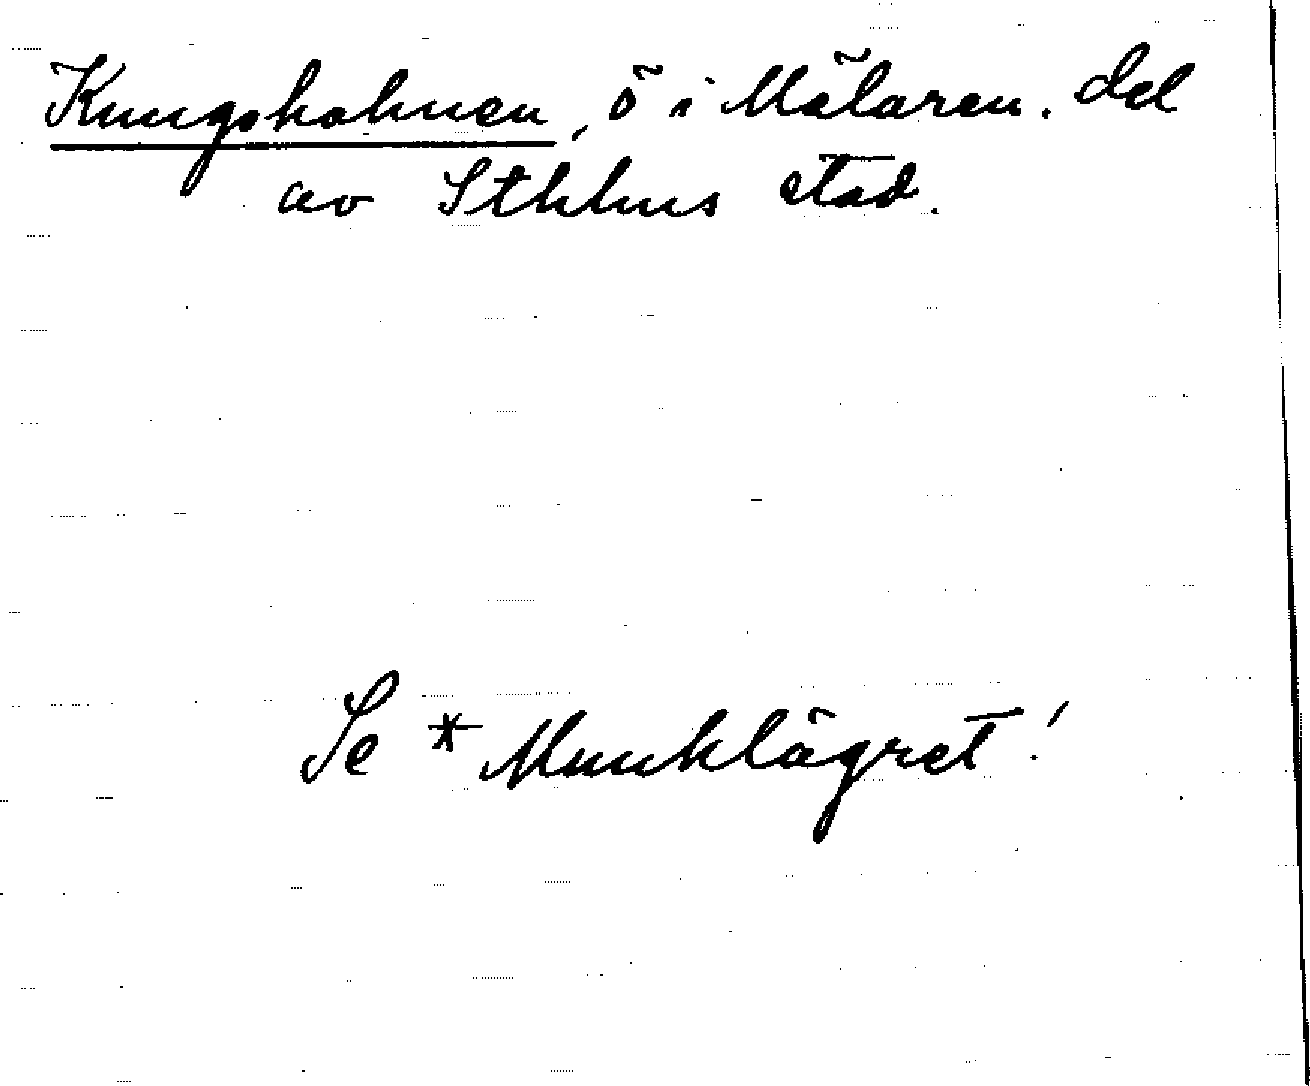 Kungsholmen, ö i Mälaren. del
av Sthlms stad.
Se * Munklägret!